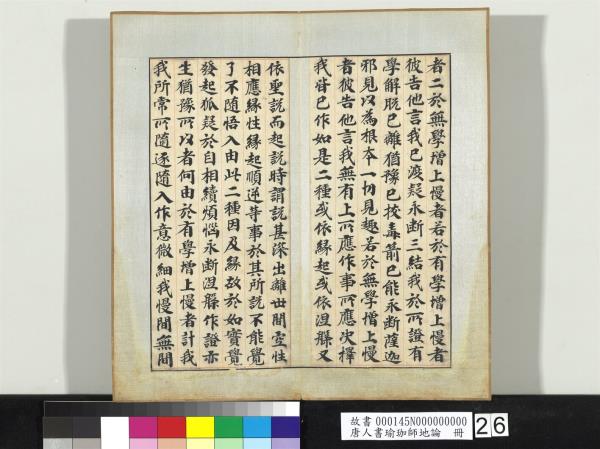 者二於無學增上慢者若於有學增上慢者
彼告他言我已渡疑永斷三結我於所證有
學解脫已離猶豫已拔毒箭已能永斷薩迦
邪見以為根本一切見趣若於無學增上慢
者彼告他言我無有上所應作事所應決擇
我皆已作如是二種或依緣起或依涅槃又
依聖說而起說時謂說甚深出離世間空性
相應緣性緣起順逆等事於其所說不能覺
了不隨悟入由此二種因及緣故於如實覺
發起狐疑於自相續煩惱永斷涅槃作證亦
生猶豫所以者何由於有學增上慢者計我
我所常所隨逐隨入作意微細我慢間無間
故書 000145N000000000
唐人書瑜珈師地論 冊
26